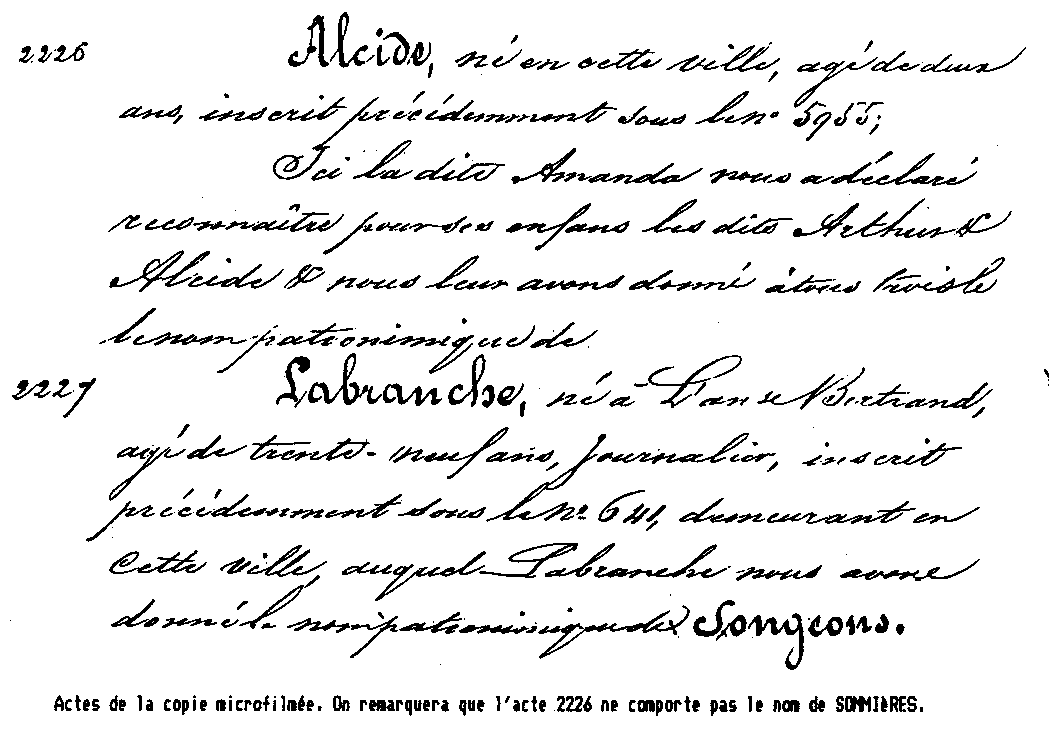 2226 Alcide, né en cette ville, agé de deux
ans, inscrit précédemment sous le no 5955;
Ici la dite Amanda nous a déclaré
reconnaître pour ses enfans les dits Arthur &
Alcide & nous leur avons donné à tous trois le
le nom patronimique de
2227 Labranche, né à L'anse Bertrand,
agé de trente-neuf ans, Journalier, inscrit
précédemment sous le No 641, demeurant en
cette ville, auquel Labranche nous avons
donné le nom patronimique de Songeons.
Actes de la copie microfilmée. On remarquera que l'acte 2226 ne comporte pas le nom de SOMMIèRES.